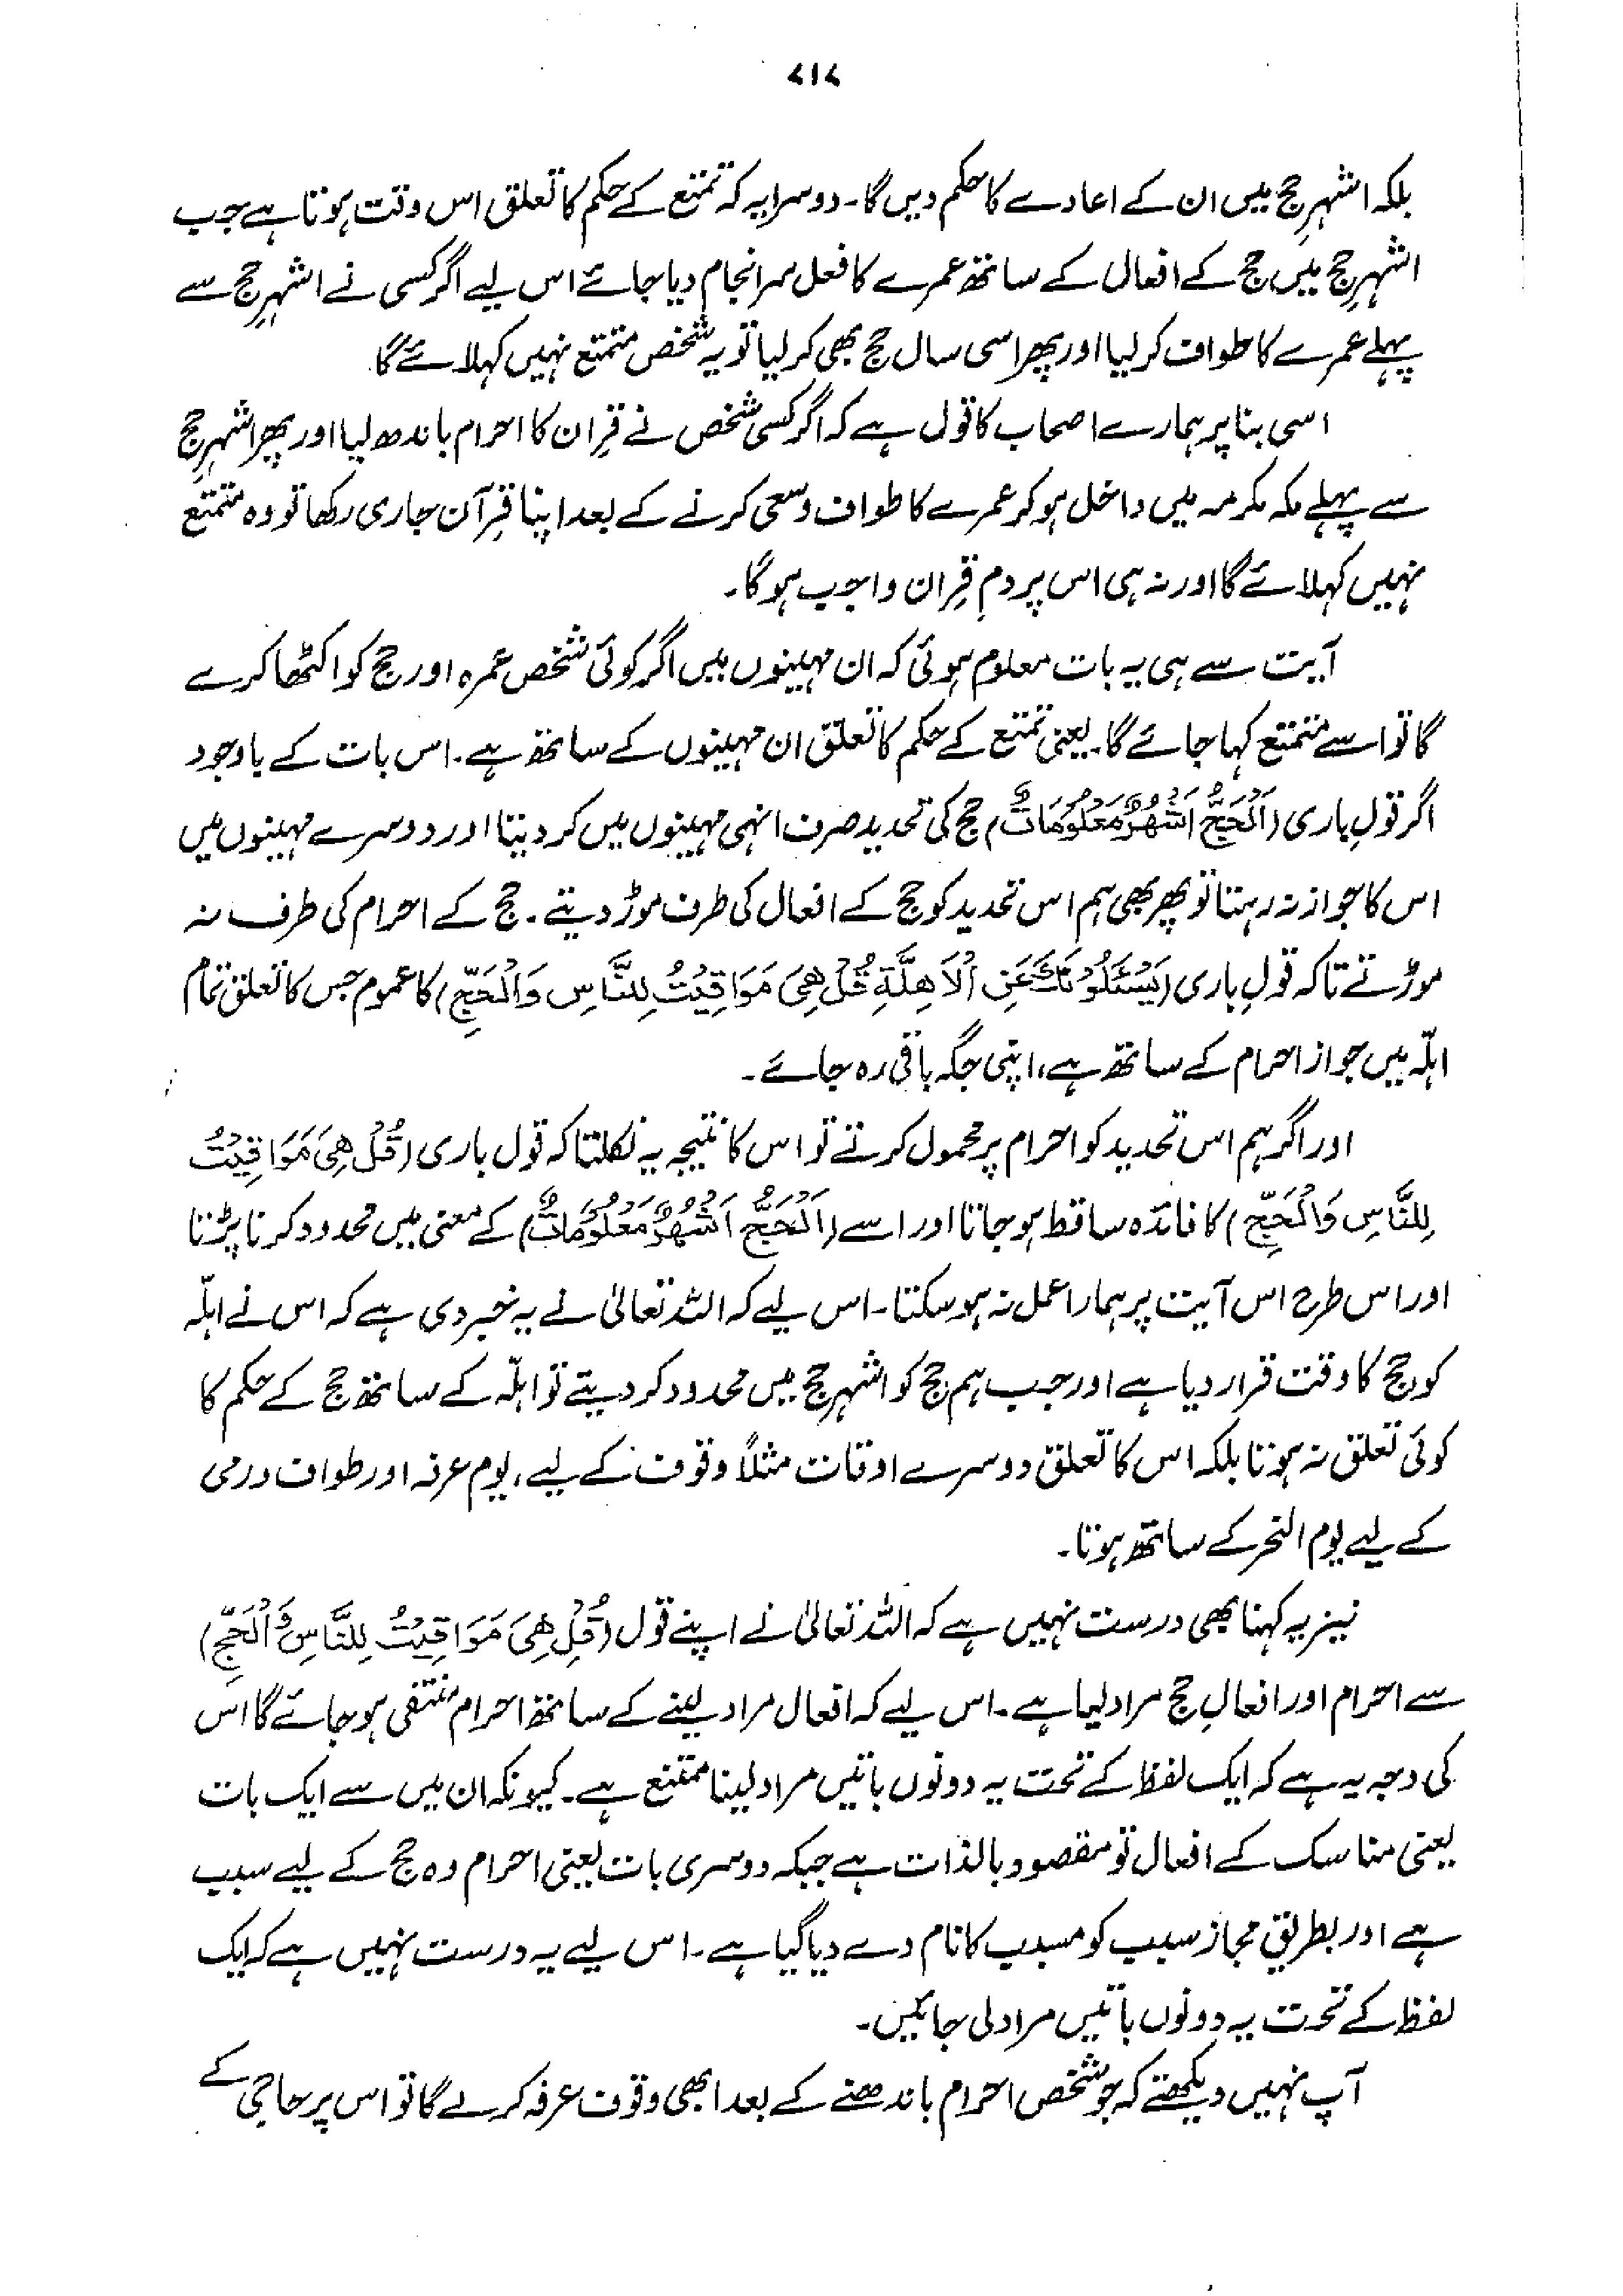 ۷۱۷
بلکہ اشہرِ حج میں ان کے اعادے کا حکم دیں گا۔ دوسرا یہ کہ تمتع کے حکم کا تعلق اس وقت ہوتا ہے جب
اشہرِ حج میں حج کے افعال کے ساتھ عمرے کا فعل سرانجام دیا جائے اس لیے اگر کسی نے اشہرِ حج سے
پہلے عمرے کا طواف کر لیا اور پھر اسی سال حج بھی کر لیا تو یہ شخص متمتع نہیں کہلائے گا۔
اسی بنا پر ہمارے اصحاب کا قول ہے کہ اگر کسی شخص نے قِران کا احرام باندھ لیا اور پھر اشہرِ حج
سے پہلے مکہ مکرمہ میں داخل ہو کر عمرے کا طواف وسعی کرنے کے بعد اپنا قِرآن جاری رکھا تو وہ متمتع
نہیں کہلائے گا اور نہ ہی اس پر دمِ قِران واجب ہو گا۔
آیت سے ہی یہ بات معلوم ہوئی کہ ان مہینوں میں اگر کوئی شخص عمرہ اور حج کو اکٹھا کرے
گا تو اسے متمتع کہا جائے گا۔ یعنی تمتع کے حکم کا تعلق ان مہینوں کے ساتھ ہے۔ اس بات کے باوجود
اگر قولِ باری (اَلْحَجُّ اَشْهُرٌ مَّعْلُوْمَاتٌ) حج کی تحدید صرف انہی مہینوں میں کر دیتا اور دوسرے مہینوں میں
اس کا جواز نہ رہتا تو پھر بھی ہم اس تحدید کو حج کے افعال کی طرف موڑ دیتے۔ حج کے احرام کی طرف نہ
موڑتے تاکہ قولِ باری (يَسْئَلُوْنَكَ عَنِ الْاَهِلَّةِ قُلْ هِيَ مَوَاقِيْتُ لِلنَّاسِ وَالْحَجِّ) کا عموم جس کا تعلق تمام
اہلّہ میں جواز احرام کے ساتھ ہے، اپنی جگہ باقی رہ جائے۔
اور اگر ہم اس تحدید کو احرام پر محمول کرتے تو اس کا نتیجہ یہ نکلتا کہ قول باری (قُلْ هِيَ مَوَاقِيْتُ
لِلنَّاسِ وَالْحَجِّ) کا فائدہ ساقط ہو جاتا اور اسے (اَلْحَجُّ اَشْهُرٌ مَّعْلُوْمَاتٌ) کے معنی میں محدود کرنا پڑتا
اور اس طرح اس آیت پر ہمارا عمل نہ ہو سکتا۔ اس لیے کہ اللہ تعالیٰ نے یہ خبر دی ہے کہ اس نے اہلّہ
کو حج کا وقت قرار دیا ہے اور جب ہم حج کو اشہرِ حج میں محدود کر دیتے تو اہلّہ کے ساتھ حج کے حکم کا
کوئی تعلق نہ ہوتا بلکہ اس کا تعلق دوسرے اوقات مثلاً وقوف کے لیے، یوم عرفہ اور طواف ورمی
کے لیے یوم النحر کے ساتھ ہوتا۔
نیز یہ کہنا بھی درست نہیں ہے کہ اللہ تعالیٰ نے اپنے قول (قُلْ هِيَ مَوَاقِيْتُ لِلنَّاسِ وَالْحَجِّ)
سے احرام اور افعالِ حج مراد لیا ہے۔ اس لیے کہ افعال مراد لینے کے ساتھ احرام منتفی ہو جائے گا اس
کی وجہ یہ ہے کہ ایک لفظ کے تحت یہ دونوں باتیں مراد لینا ممتنع ہے۔ کیونکہ ان میں سے ایک بات
یعنی مناسک کے افعال تو مقصود بالذات ہے جبکہ دوسری بات یعنی احرام وہ حج کے لیے سبب
ہے اور بطریقِ مجاز سبب کو مسبب کا نام دے دیا گیا ہے۔ اس لیے یہ درست نہیں ہے کہ ایک
لفظ کے تحت یہ دونوں باتیں مراد لی جائیں۔
آپ نہیں دیکھتے کہ جو شخص احرام باندھنے کے بعد ابھی وقوف عرفہ کرلے گا تو اس پر حاجی کے